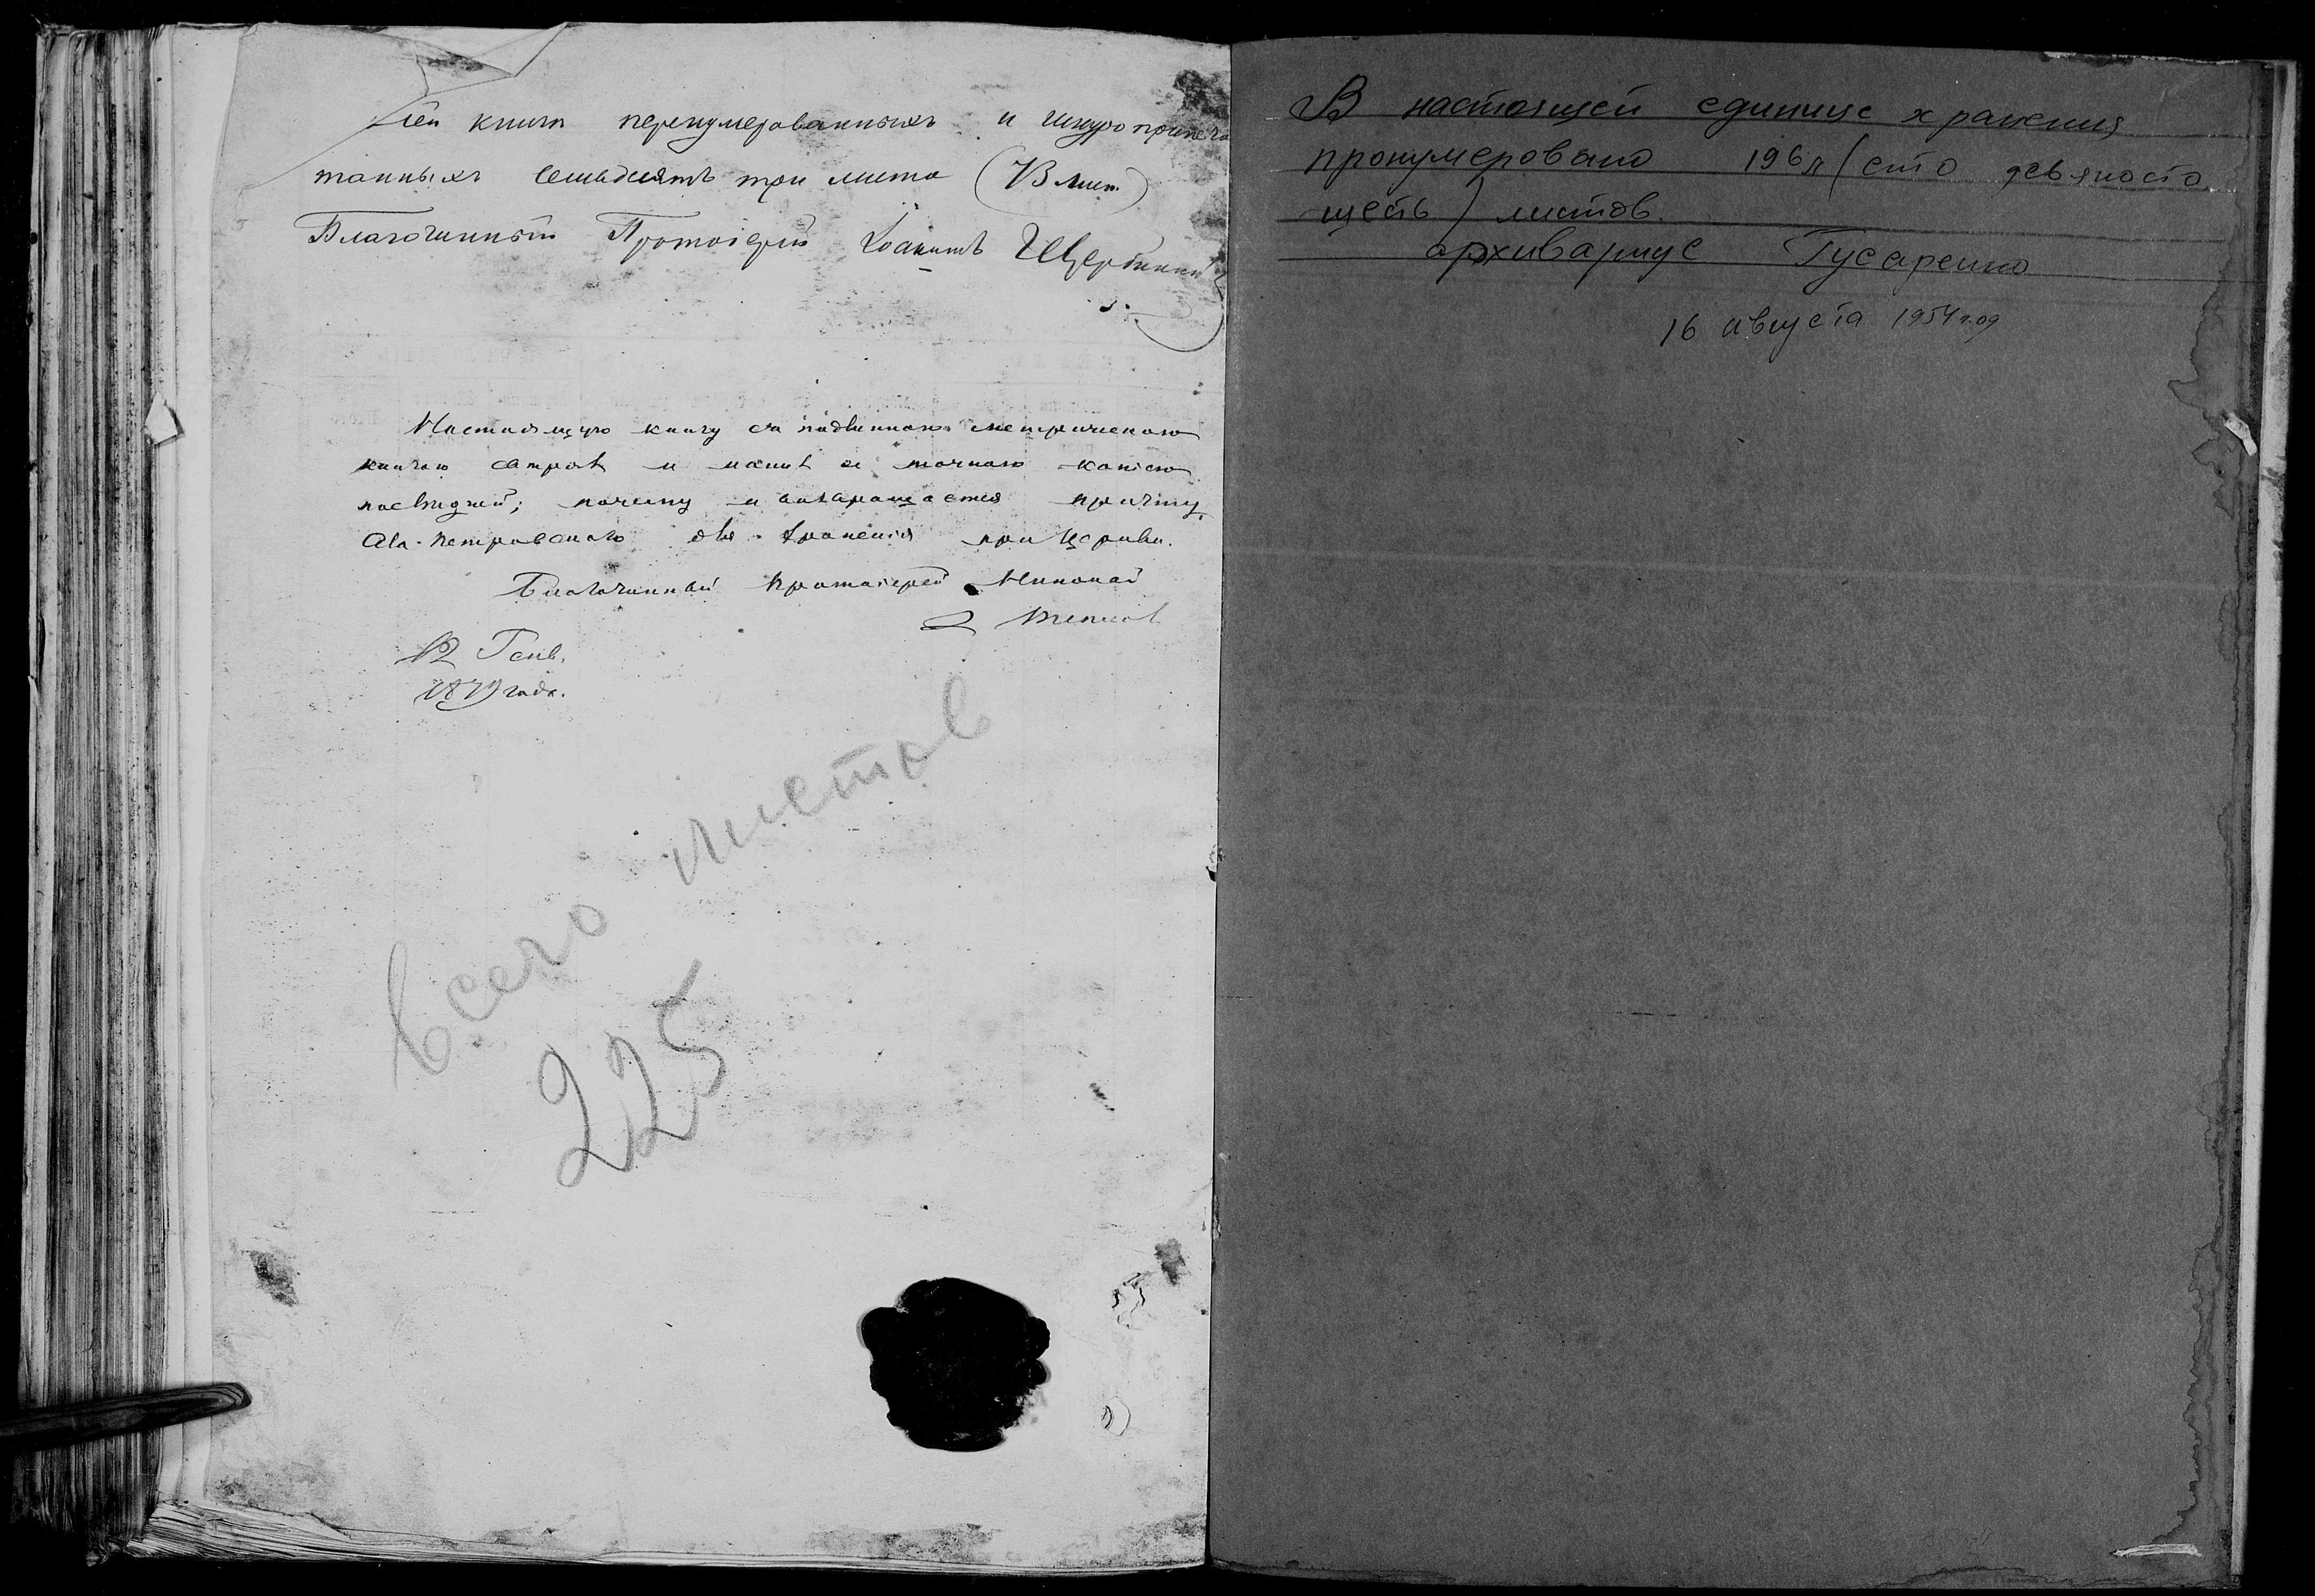 сей книги перенумерованныхъ и шнуропричеча
танныхъ семьдесятъ три листа (73 лист.)
Благочинный Протоіерей Іоаннъ Щербинин
Настоящую книгу съ подлинною метрическою
книгою сверял и нашел ее точною копіею
последней; почему и возвращается причту
Ала-Петровскаго для храненія при Церкви.
Благочинный Протоіерей Николай
12 Генв.
1879 года.
всего листов
225
В настоящей единице хранения
пронумеровано 196 л (сто девяносто
шесть) листов.
архивариус Гусаренко
16 августа 1954 год